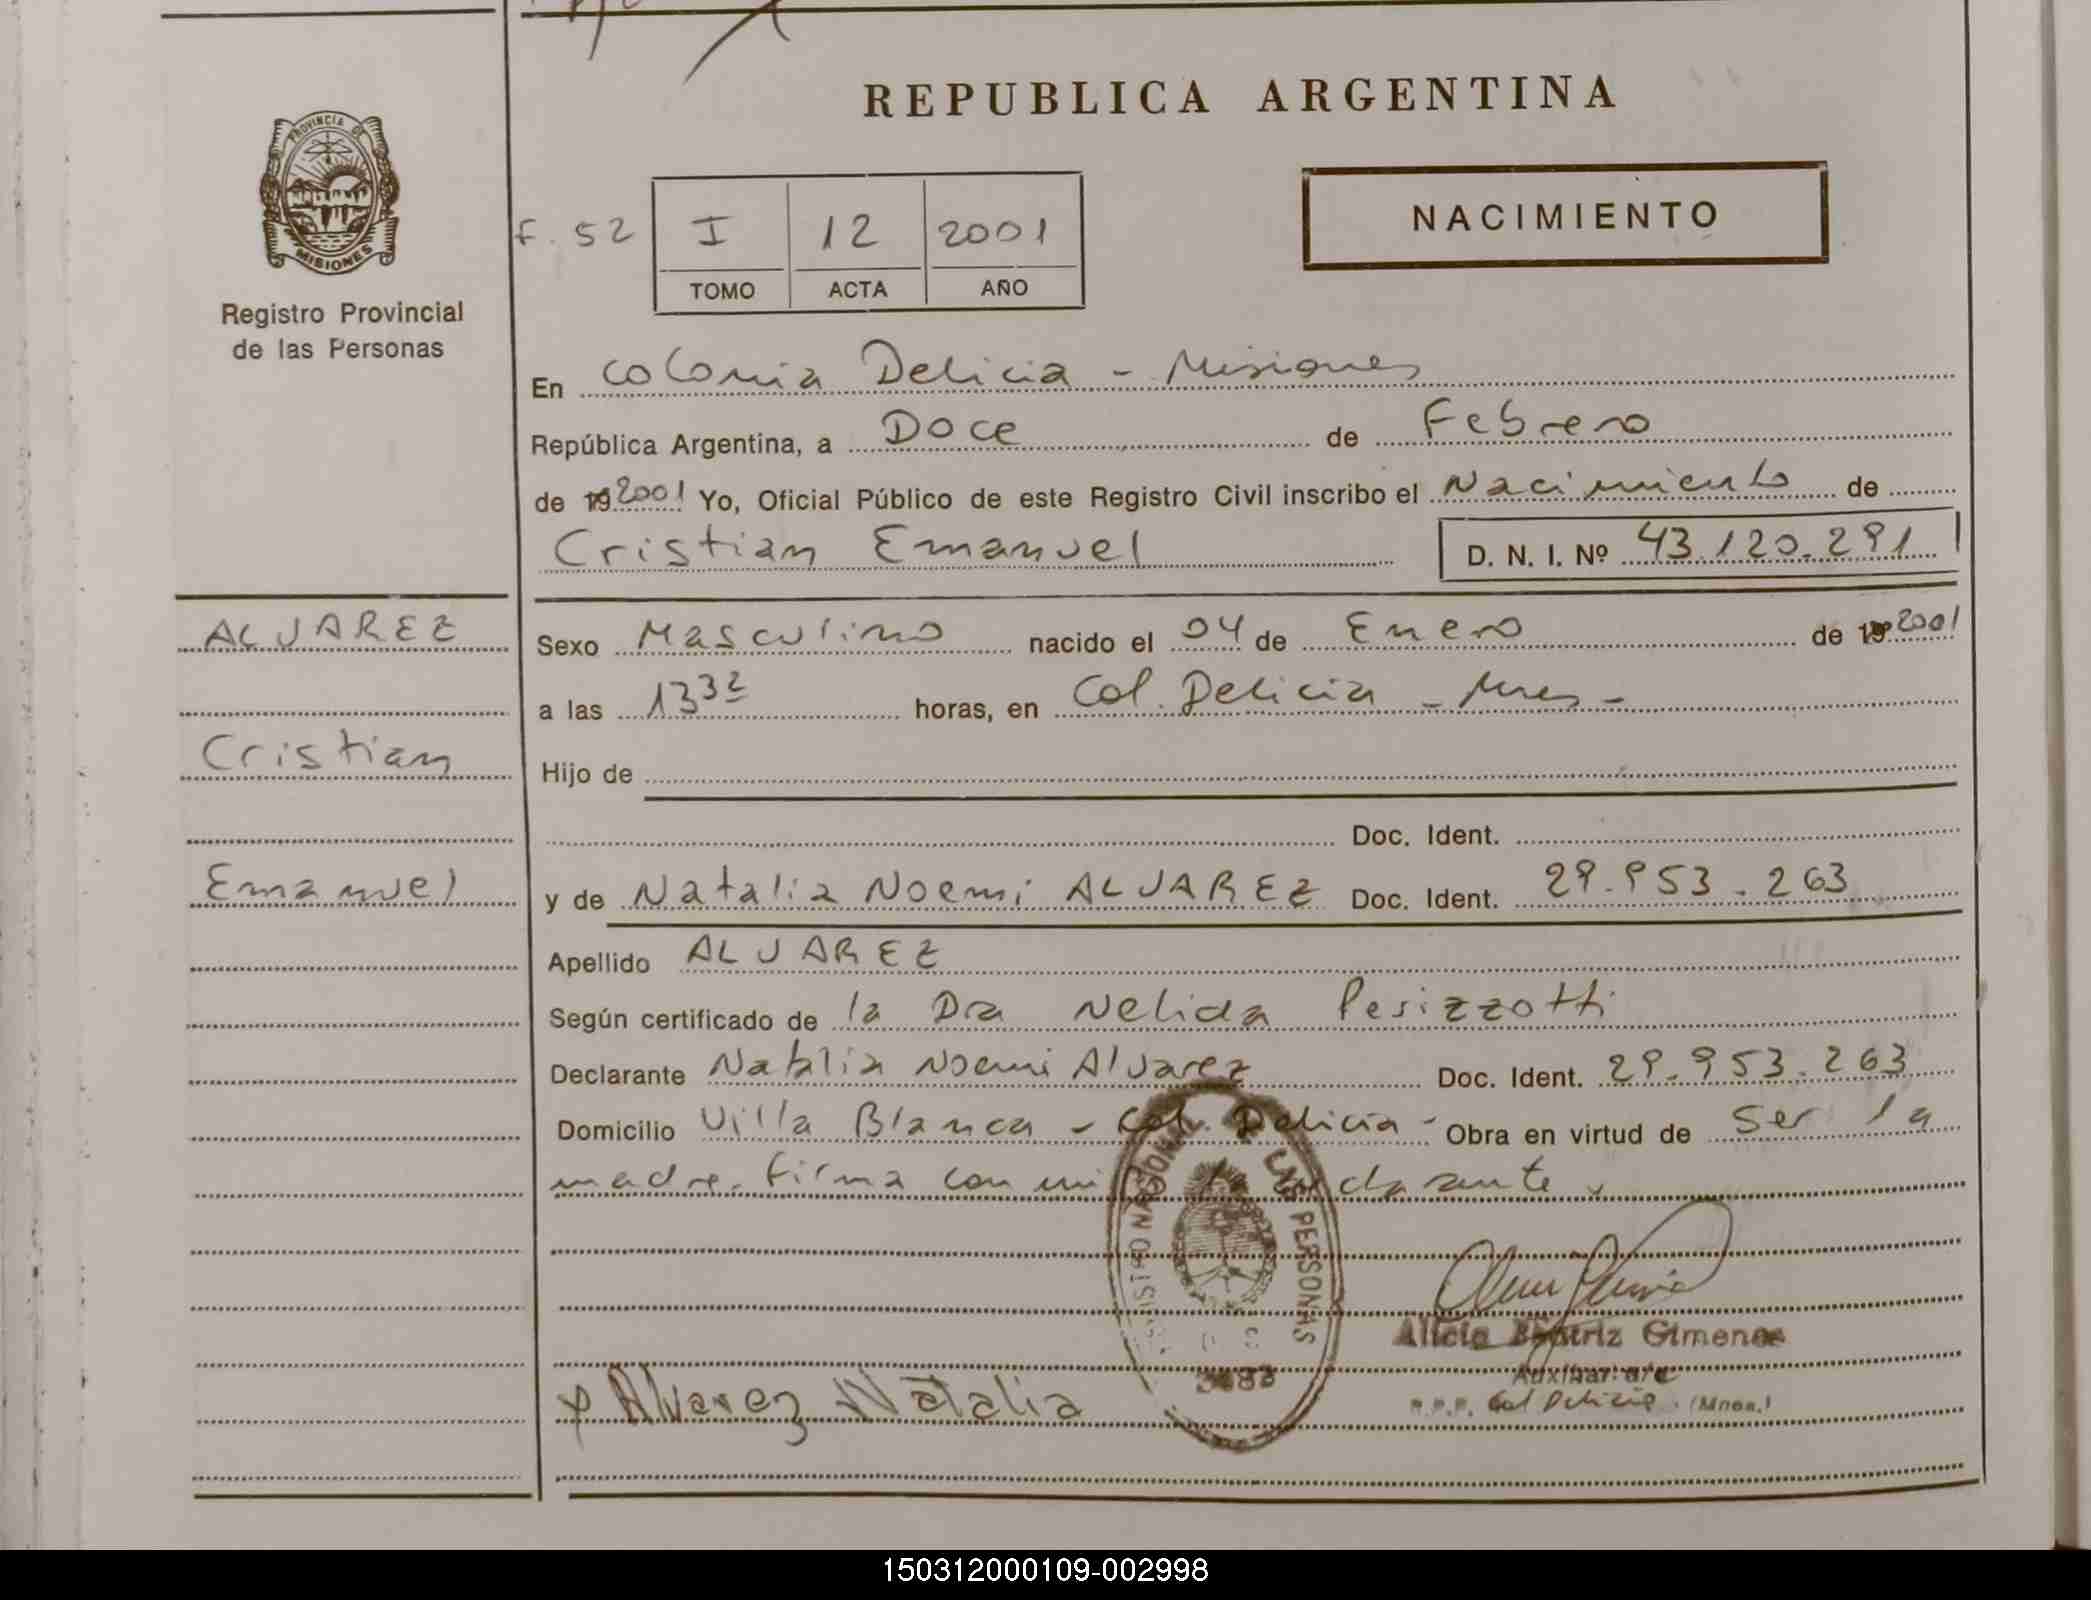 REPUBLICA ARGENTINA
PROVINCIA DE
MISIONES
Registro Provincial
de las Personas
NACIMIENTO
F. 52
I 12 2001
TOMO ACTA AÑO
En Colonia Delicia - Misiones
República Argentina, a Doce de Febrero
de 19 2001 Yo, Oficial Público de este Registro Civil inscribo el Nacimiento de
Cristian Emanuel D. N. I. Nº 43.120.291
ALVAREZ
Cristian
Emanuel
Sexo Masculino nacido el 04 de Enero de 19 2001
a las 13 32 horas, en Col. Delicia - Mnes -
Hijo de
Doc. Ident.
y de Natalia Noemi ALVAREZ Doc. Ident. 29.953.263
Apellido ALVAREZ
Según certificado de la Dra Nelida Perizzotti
Declarante Natalia Noemi Alvarez Doc. Ident. 29.953.263
Domicilio Villa Blanca - Col. Delicia - Obra en virtud de ser la
madre. firma con mi la declarante
LAS PERSONAS
3482
Alicia Beatriz Gimenez
Auxiliar a/c
R.P.P. Col Delicia (Mnes.)
x Alvarez Natalia
150312000109-002998